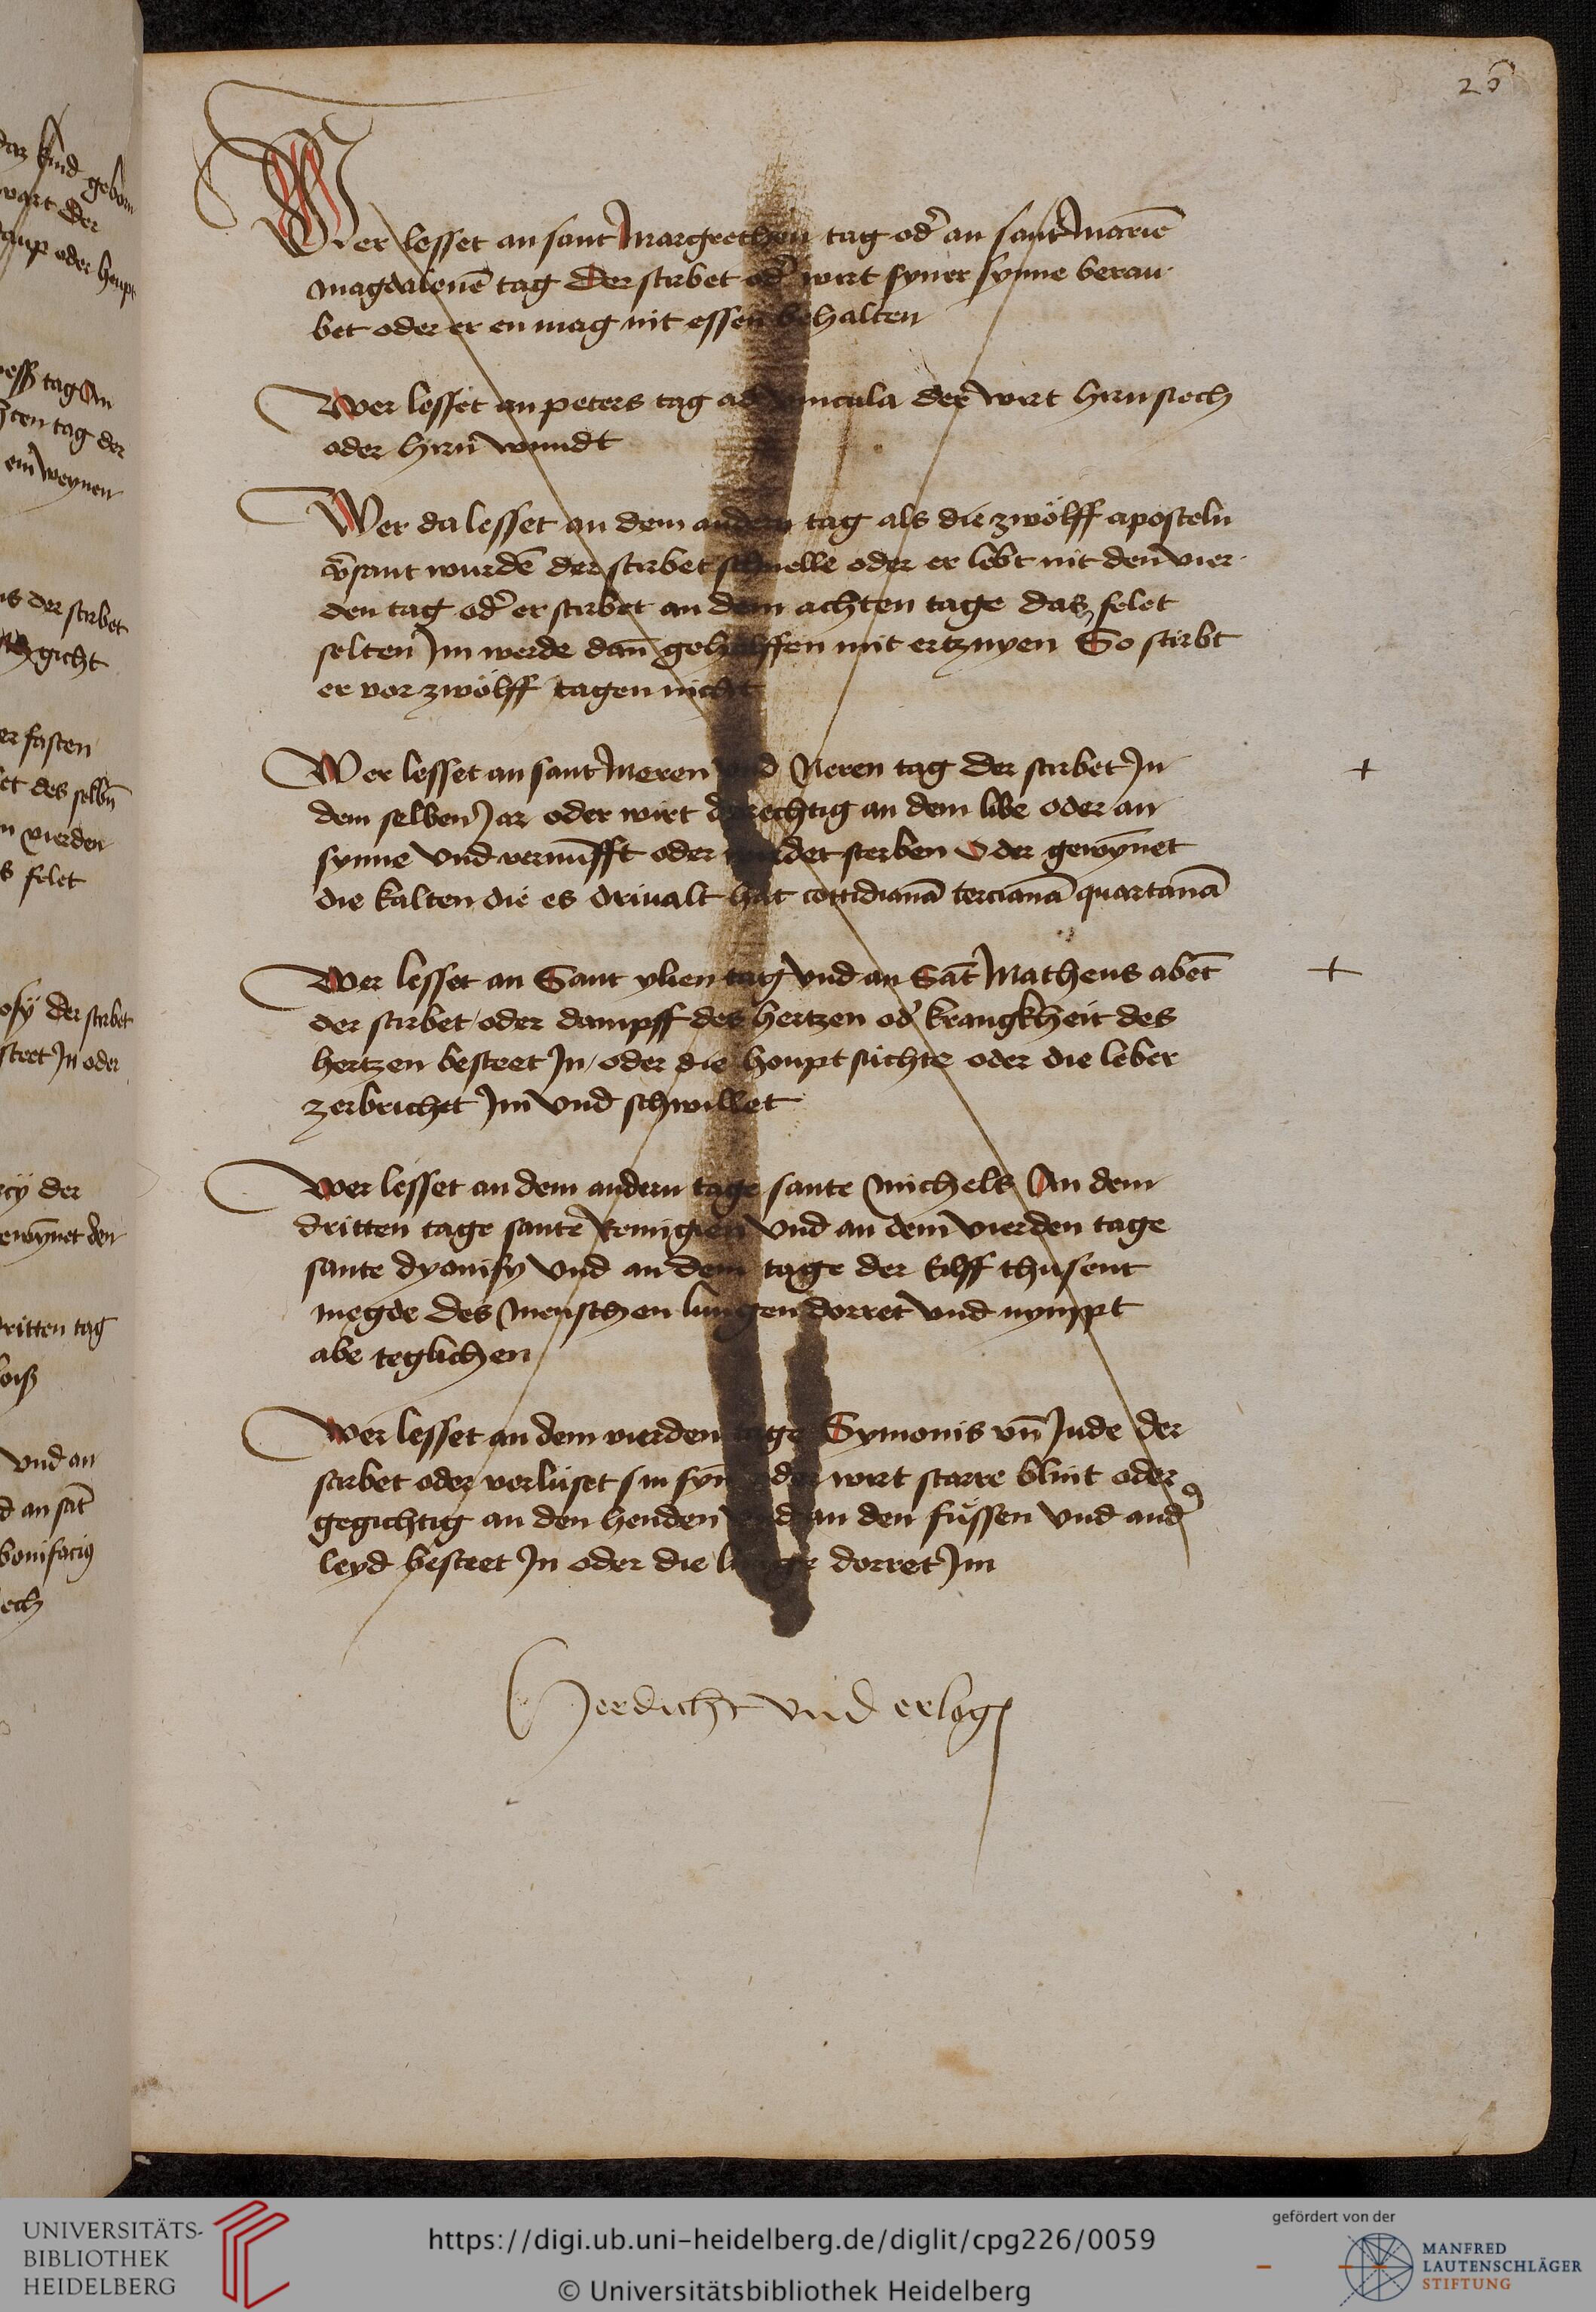 26
Wer lesset an sant Margrethen tag od' an sant Mariē
magdalenē tag Der stirbet od' wirt syner synne berau
bet oder er en mag nit essen behalten
Wer lesset an peters tag ad vincula der wirt hirnsiech
oder hirn wundt
Wer da lesset an dem andern tag als die zwölff aposteln
v'sant wurdē der stirbet schnelle oder er lebt nit den vier
den tag od' er stirbet an dem achten tage das felet
selten Im werde dan̄ geholffen mit ertznyen So stirbt
er vor zwölff tagen nicht
Wer lesset an sant Meren vnd Neren tag der stirbet In
dem selben Jar oder wirt an dem libe oder an
synne vnd vernūfft oder sterben Oder gewȳnet
die kalten die es drivalt hat cottidianā tercianā quartanā
Wer lesset an Sant ylien tag vnd an Sāt Matheus abēt
der stirbet oder dampff des hertzen od' krangkheit des
hertzen besteet In oder die houpt süchte oder die leber
zerbrichet Im vnd schwillet
Wer lesset an dem andern tage sante Michels An dem
dritten tage sante Remigien vnd an dem vierden tage
sante dyonisy vnd an dem tage der Eilff thusent
megde des Menschen lungen dorret vnd nympt
abe teglichen
Wer lesset an dem vierden tage Symonis vn̄ Jude der
stirbet oder verlüset sin syn oder wirt starre blint oder
gegichtig an den henden vnd an den füssen vnd and'
leyd besteet In oder die lunge dorret Im
erdicht vnd erlog
daz kind geborn
wart der
oder houpt
tag An
tag der
ein weynen
der stirbet
gicht
fasten
des selbn̄
vierden
felet
der stirbet
steet In oder
der
gewȳnet den
dritten tag
vnd an
an sāt
bonifacius
UNIVERSITÄTS-
BIBLIOTHEK
HEIDELBERG
https://digi.ub.uni-heidelberg.de/diglit/cpg226/0059
© Universitätsbibliothek Heidelberg
gefördert von der
MANFRED
LAUTENSCHLÄGER
STIFTUNG